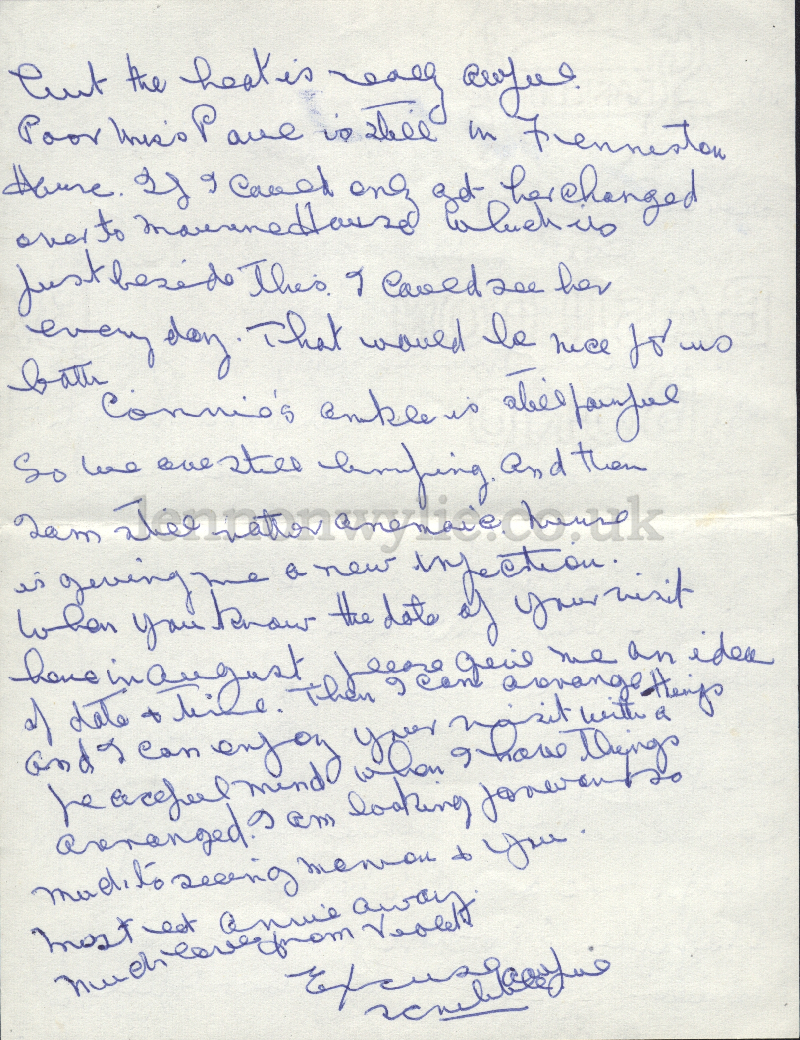 but the heat is really awful.
Poor Miss Paul is still in Frenniston
House. If I could only get her changed
over to Mourne House which is
just beside this. I could see her
every day. That would be nice for us
both
Connie's ankle is still painful
So we are still limping. And then
I am still rather anaemic Nurse
lennonwylie.co.uk
is giving me a new injection.
When you know the date of your visit
here in August, please give me an idea
of date & time. Then I can arrange things
and I can enjoy your visit with a
peaceful mind when I have things
arranged. I am looking forward so
much to seeing Marion & you.
Must let Annie away.
Much love from Violet
Excuse awful
scribble